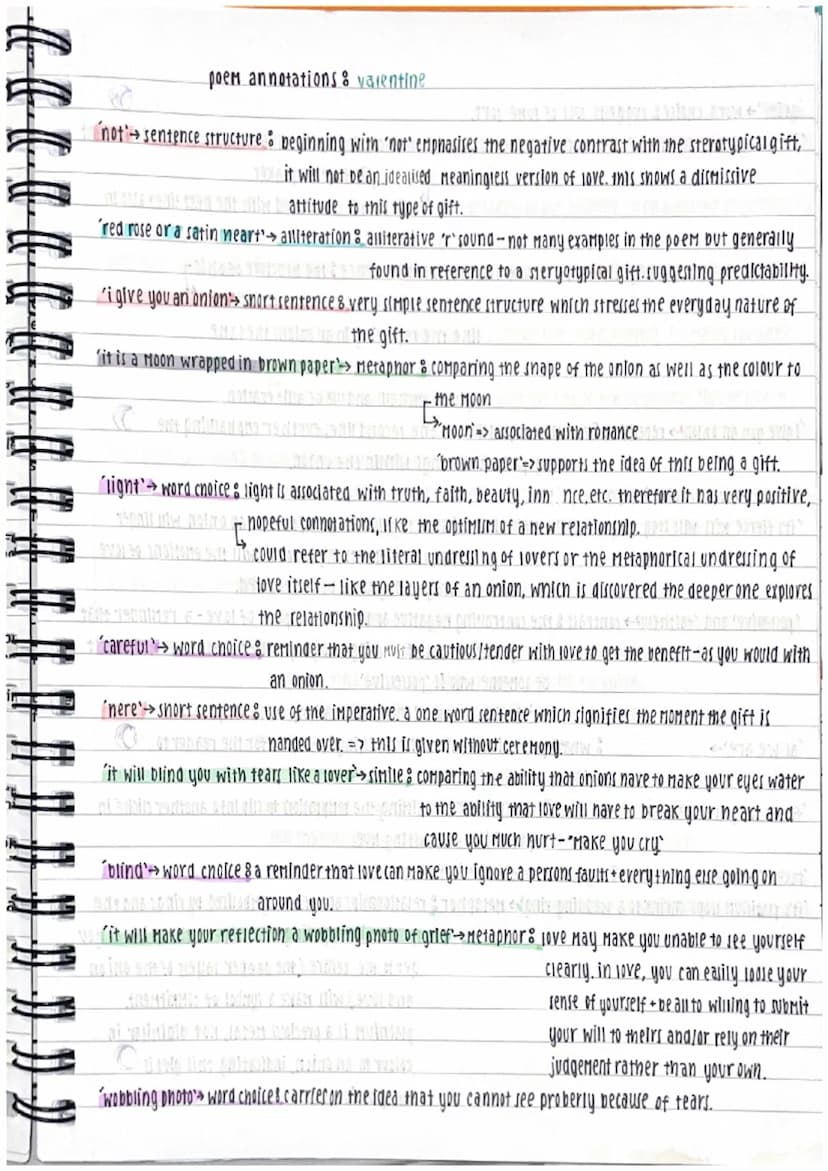 poem annotations : valentine
'not' → sentence structure : beginning with 'not' emphasises the negative contrast with the sterotypical gift,
it will not be an idealised meaningless version of love. this shows a dismissive
attitude to this type of gift.
'red rose or a satin heart' → alliteration : alliterative 'r' sound - not many examples in the poem but generally
found in reference to a steryotypical gift. suggesting predictability.
'i give you an onion' → short sentence : very simple sentence structure which stresses the everyday nature of
the gift.
'it is a moon wrapped in brown paper' → metaphor : comparing the shape of the onion as well as the colour to
the moon
↳ 'moon' => associated with romance
'brown paper' => supports the idea of this being a gift.
'light' → word choice : light is associated with truth, faith, beauty, inn nce, etc. therefore it has very positive,
hopeful connotations, like the optimism of a new relationship.
↳ could refer to the literal undressing of lovers or the metaphorical undressing of
love itself - like the layers of an onion, which is discovered the deeper one explores
the relationship.
'careful' → word choice : reminder that you must be cautious/tender with love to get the benefit - as you would with
an onion.
'here' → short sentence : use of the imperative. a one word sentence which signifies the moment the gift is
handed over. => this is given without ceremony.
'it will blind you with tears like a lover' → simile : comparing the ability that onions have to make your eyes water
to the ability that love will have to break your heart and
cause you much hurt - "make you cry"
'blind' → word choice : a reminder that love can make you ignore a persons faults + everything else going on
around you.
'it will make your reflection a wobbling photo of grief' → metaphor : love may make you unable to see yourself
clearly. in love, you can easily loose your
sense of yourself + be all to willing to submit
your will to theirs and/or rely on their
judgement rather than your own.
'wobbling photo' → word choice : carries on the idea that you cannot see proberly because of tears.